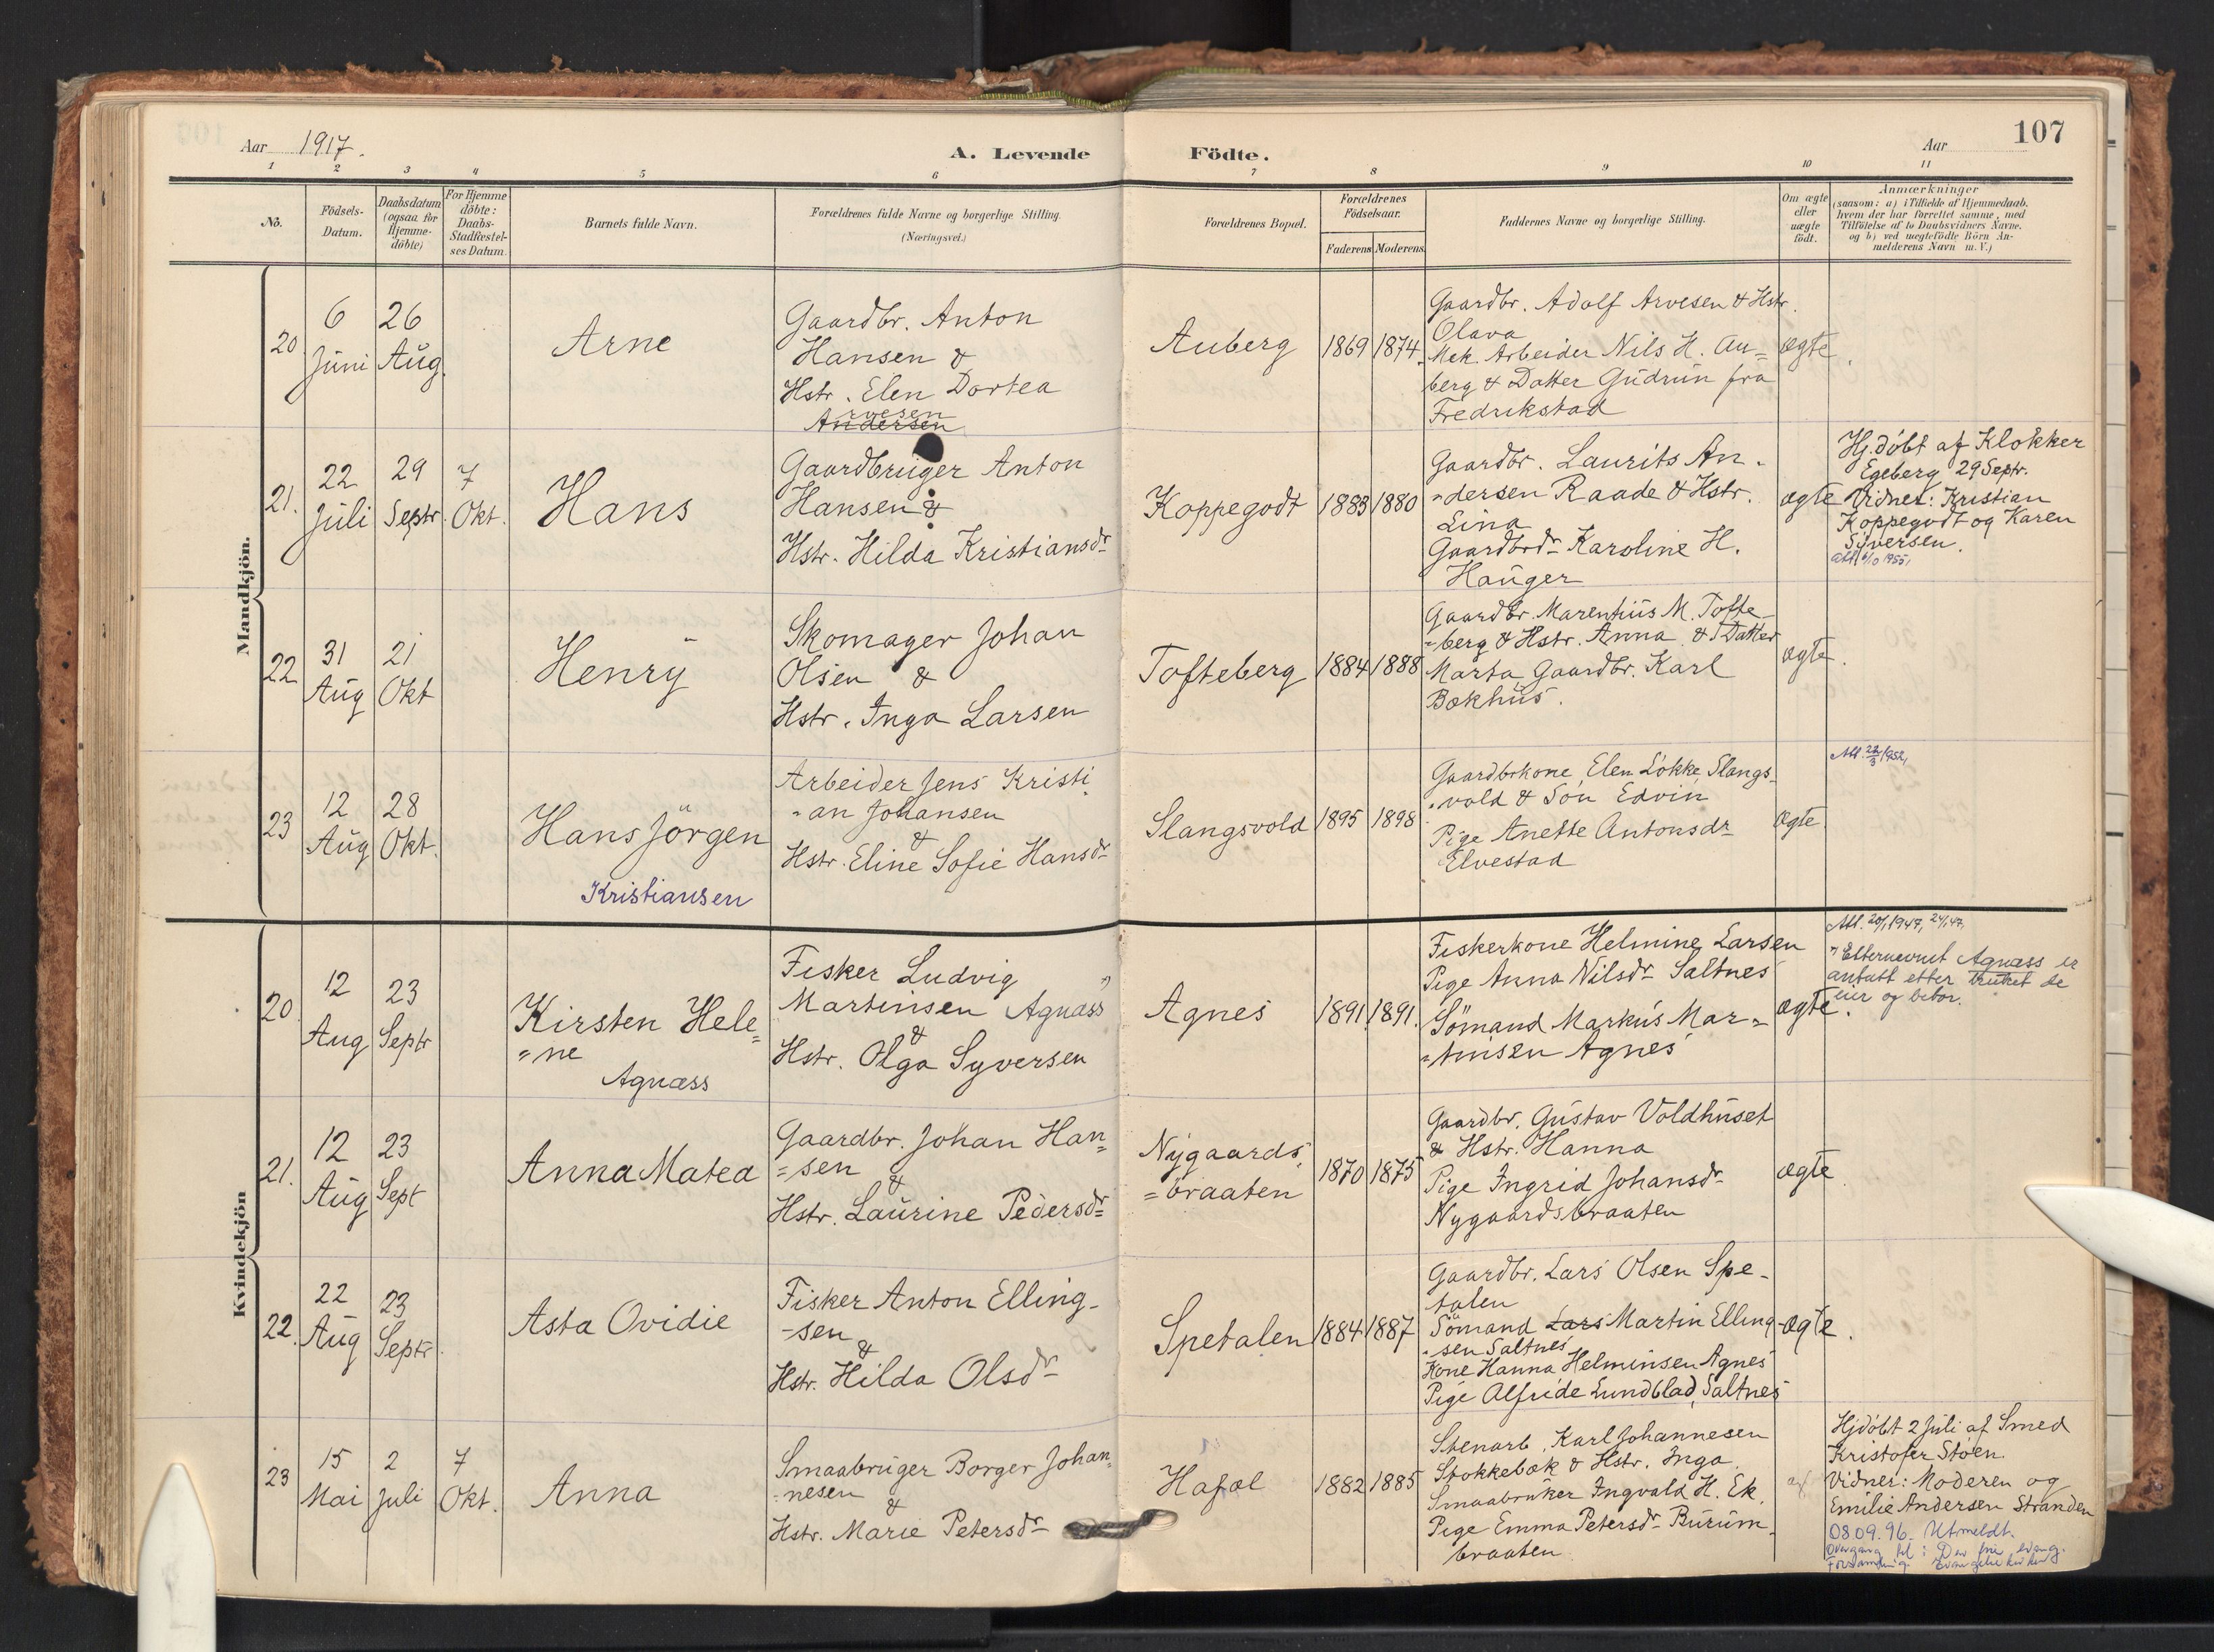 107
Aar 1917.
A. Levende
Födte.
Aar
1 2 3 4 5 6 7 8 9 10 11
No.
Födsels-
Datum.
Daabsdatum
(ogsaa for
Hjemme-
döbte)
For Hjemme
döbte:
Daabs-
Stadfæstel-
ses Datum.
Barnets fulde Navn.
Forældrenes fulde Navne og borgerlige Stilling.
(Næringsvei.)
Forældrenes Bopæl.
Forældrenes
Födselsaar.
Faderens Moderens
Faddernes Navne og borgerlige Stilling.
Om ægte
eller
uægte
födt.
Anmærkninger
(saasom: a) i Tilfælde af Hjemmedaab,
hvem der har forrettet samme, med
Tilföielse af to Daabsvidners Navne.
og b) ved uægtefödte Börn An-
melderens Navn m.V.)
Mandkjön.
20
6
Juni
26
Aug.
Arne
Gaardbr. Anton
Hansen &
Hstr. Elen Dortea
Arvesen
Andersen
Auberg
1869 1874
Gaardbr. Adolf Arvesen & Hstr.
Olava
Mek. Arbeider Nils H. Au=
berg & Datter Gudrun fra
Fredrikstad
ægte.
21.
22
Juli
29
Septr.
7
Okt.
Hans
Gaardbruger Anton
Hansen &
Hstr. Hilda Kristiansdr
Koppegodt
1883 1880
Gaardbr. Laurits An-
-dersen Raade & Hstr.
Lina
Gaardbrdr Karoline H.
Hauger
ægte
Hj.döbt af Klokker
Egeberg 29 Septr.
Vidner: Kristian
Koppegodt og Karen
Syversen.
22
31
Aug
21
Okt
Henry
Skomager Johan
Olsen &
Hstr. Inga Larsen
Tofteberg
1884 1888
Gaardbr. Marentius M. Tofte
=berg & Hstr. Anna & Datter
Marta, Gaardbr. Karl
Bokhus.
ægte.
23
12
Aug
28
Okt.
Hans Jörgen
Kristiansen
Arbeider Jens Kristi
-an Johansen
&
Hstr. Eline Sofie Hansdr
Slangsvold
1895 1898
Gaardbrkone Elen Løkke, Slangs-
-vold & Søn Edvin
Pige Anette Antonsdr
Elvestad
ægte.
1952,
Kvindekjön
20
12
Aug
23
Septr
Kirsten Hele=
=ne
Agnæss
Fisker Ludvig
Martinsen Agnæss
&
Hstr. Olga Syversen
Agnes
1891 1891.
Fiskerkone Helmine Larsen
Pige Anna Nilsdr Saltnes
Sømand Markus Mar-
=tinsen Agnes
ægte.
1947,
Etternavnet Agnæss er
antatt etter bruket de
eier og bebor.
21.
12
Aug
23
Sept
Anna Matea
Gaardbr. Johan Han=
=sen
&
Hstr. Laurine Pedersdr
Nygaards,
=braaten
1870 1875
Gaardbr. Gustav Voldhuset
& Hstr. Hanna
Pige Ingrid Johansdr
Nygaardsbraaten
ægte.
22.
22
Aug
23
Septr.
Asta Ovidie
Fisker Anton Elling-
-sen
&
Hstr. Hilda Olsdr
Spetalen
1884 1887
Gaardbr. Lars Olsen Spe-
talen
Sömand Lars Martin Elling-
-sen Saltnes
Kone Hanna Helminsen Agnes
Pige Alfride Lundblad, Saltnes
ægte.
23
15
Mai
2
Juli
7
Okt.
Anna
Smaabruger Borger Johan=
=nesen
&
Hstr. Marie Petersdr
Hafæl
1882 1885
Stenarb. Karl Johannesen
Stokkebæk & Hstr. Inga.
Smaabruker Ingvald H. Ek.
Pige Emma Petersdr Burum-
braaten
Hjdöbt 2 Juli af Smed
Kristofer Støen.
Vidner: Moderen og
Emilie Andersen Stranden
0809.96. Utmeldt.
Overgang til: Den frie evang.
Forsamling.